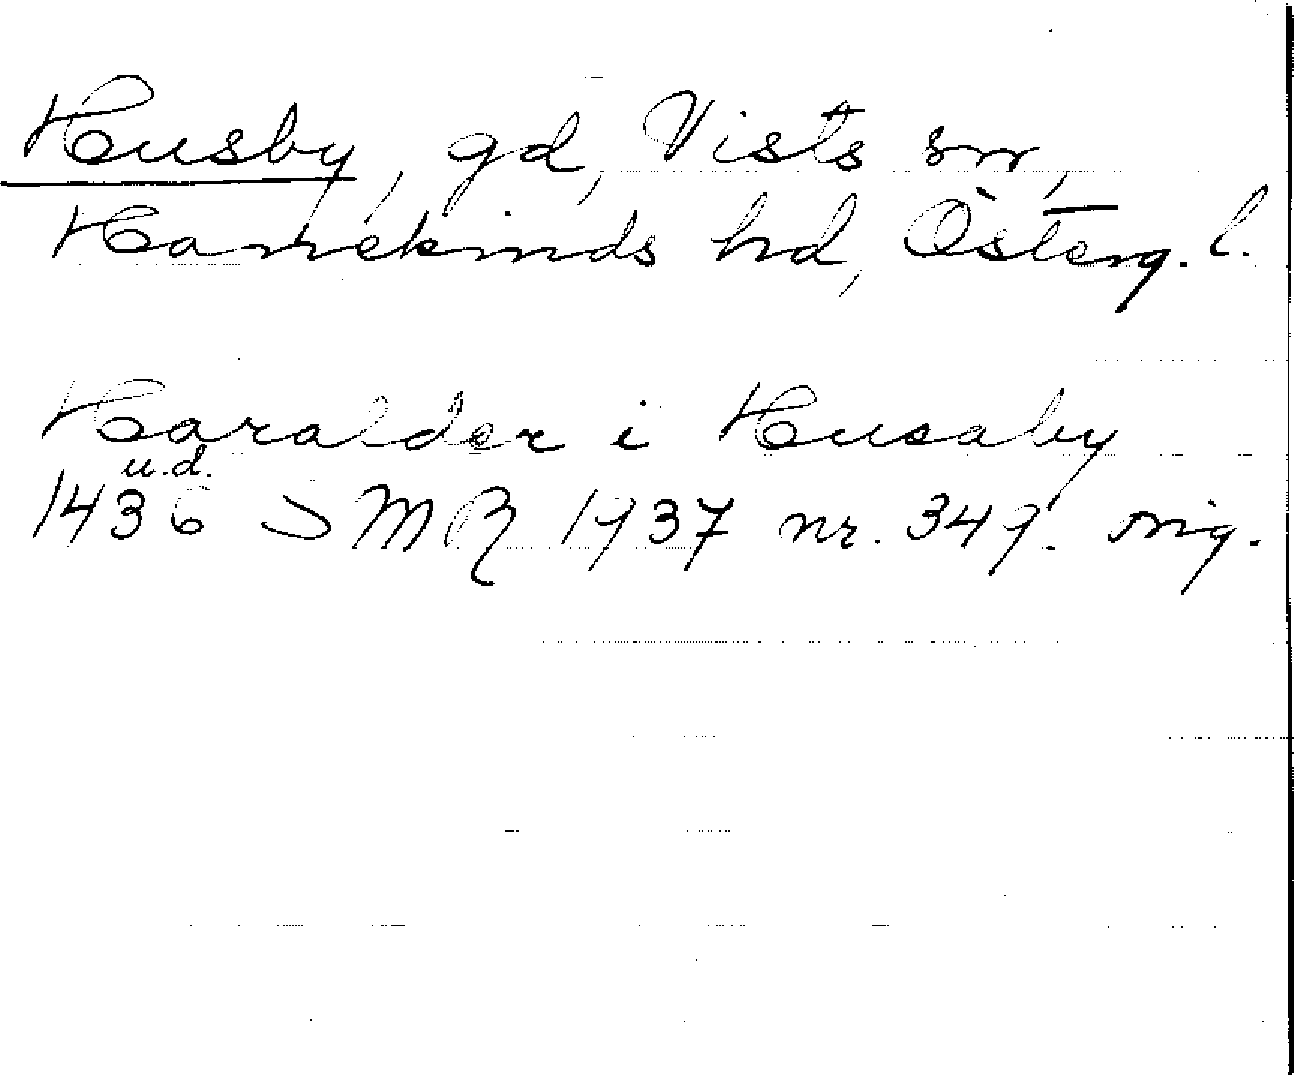 Husby, gd, Vists sn,
Hanekinds hd, Österg. l.
Haralder i Husaby
u.d.
1436 SMR 1937 nr. 349. orig.